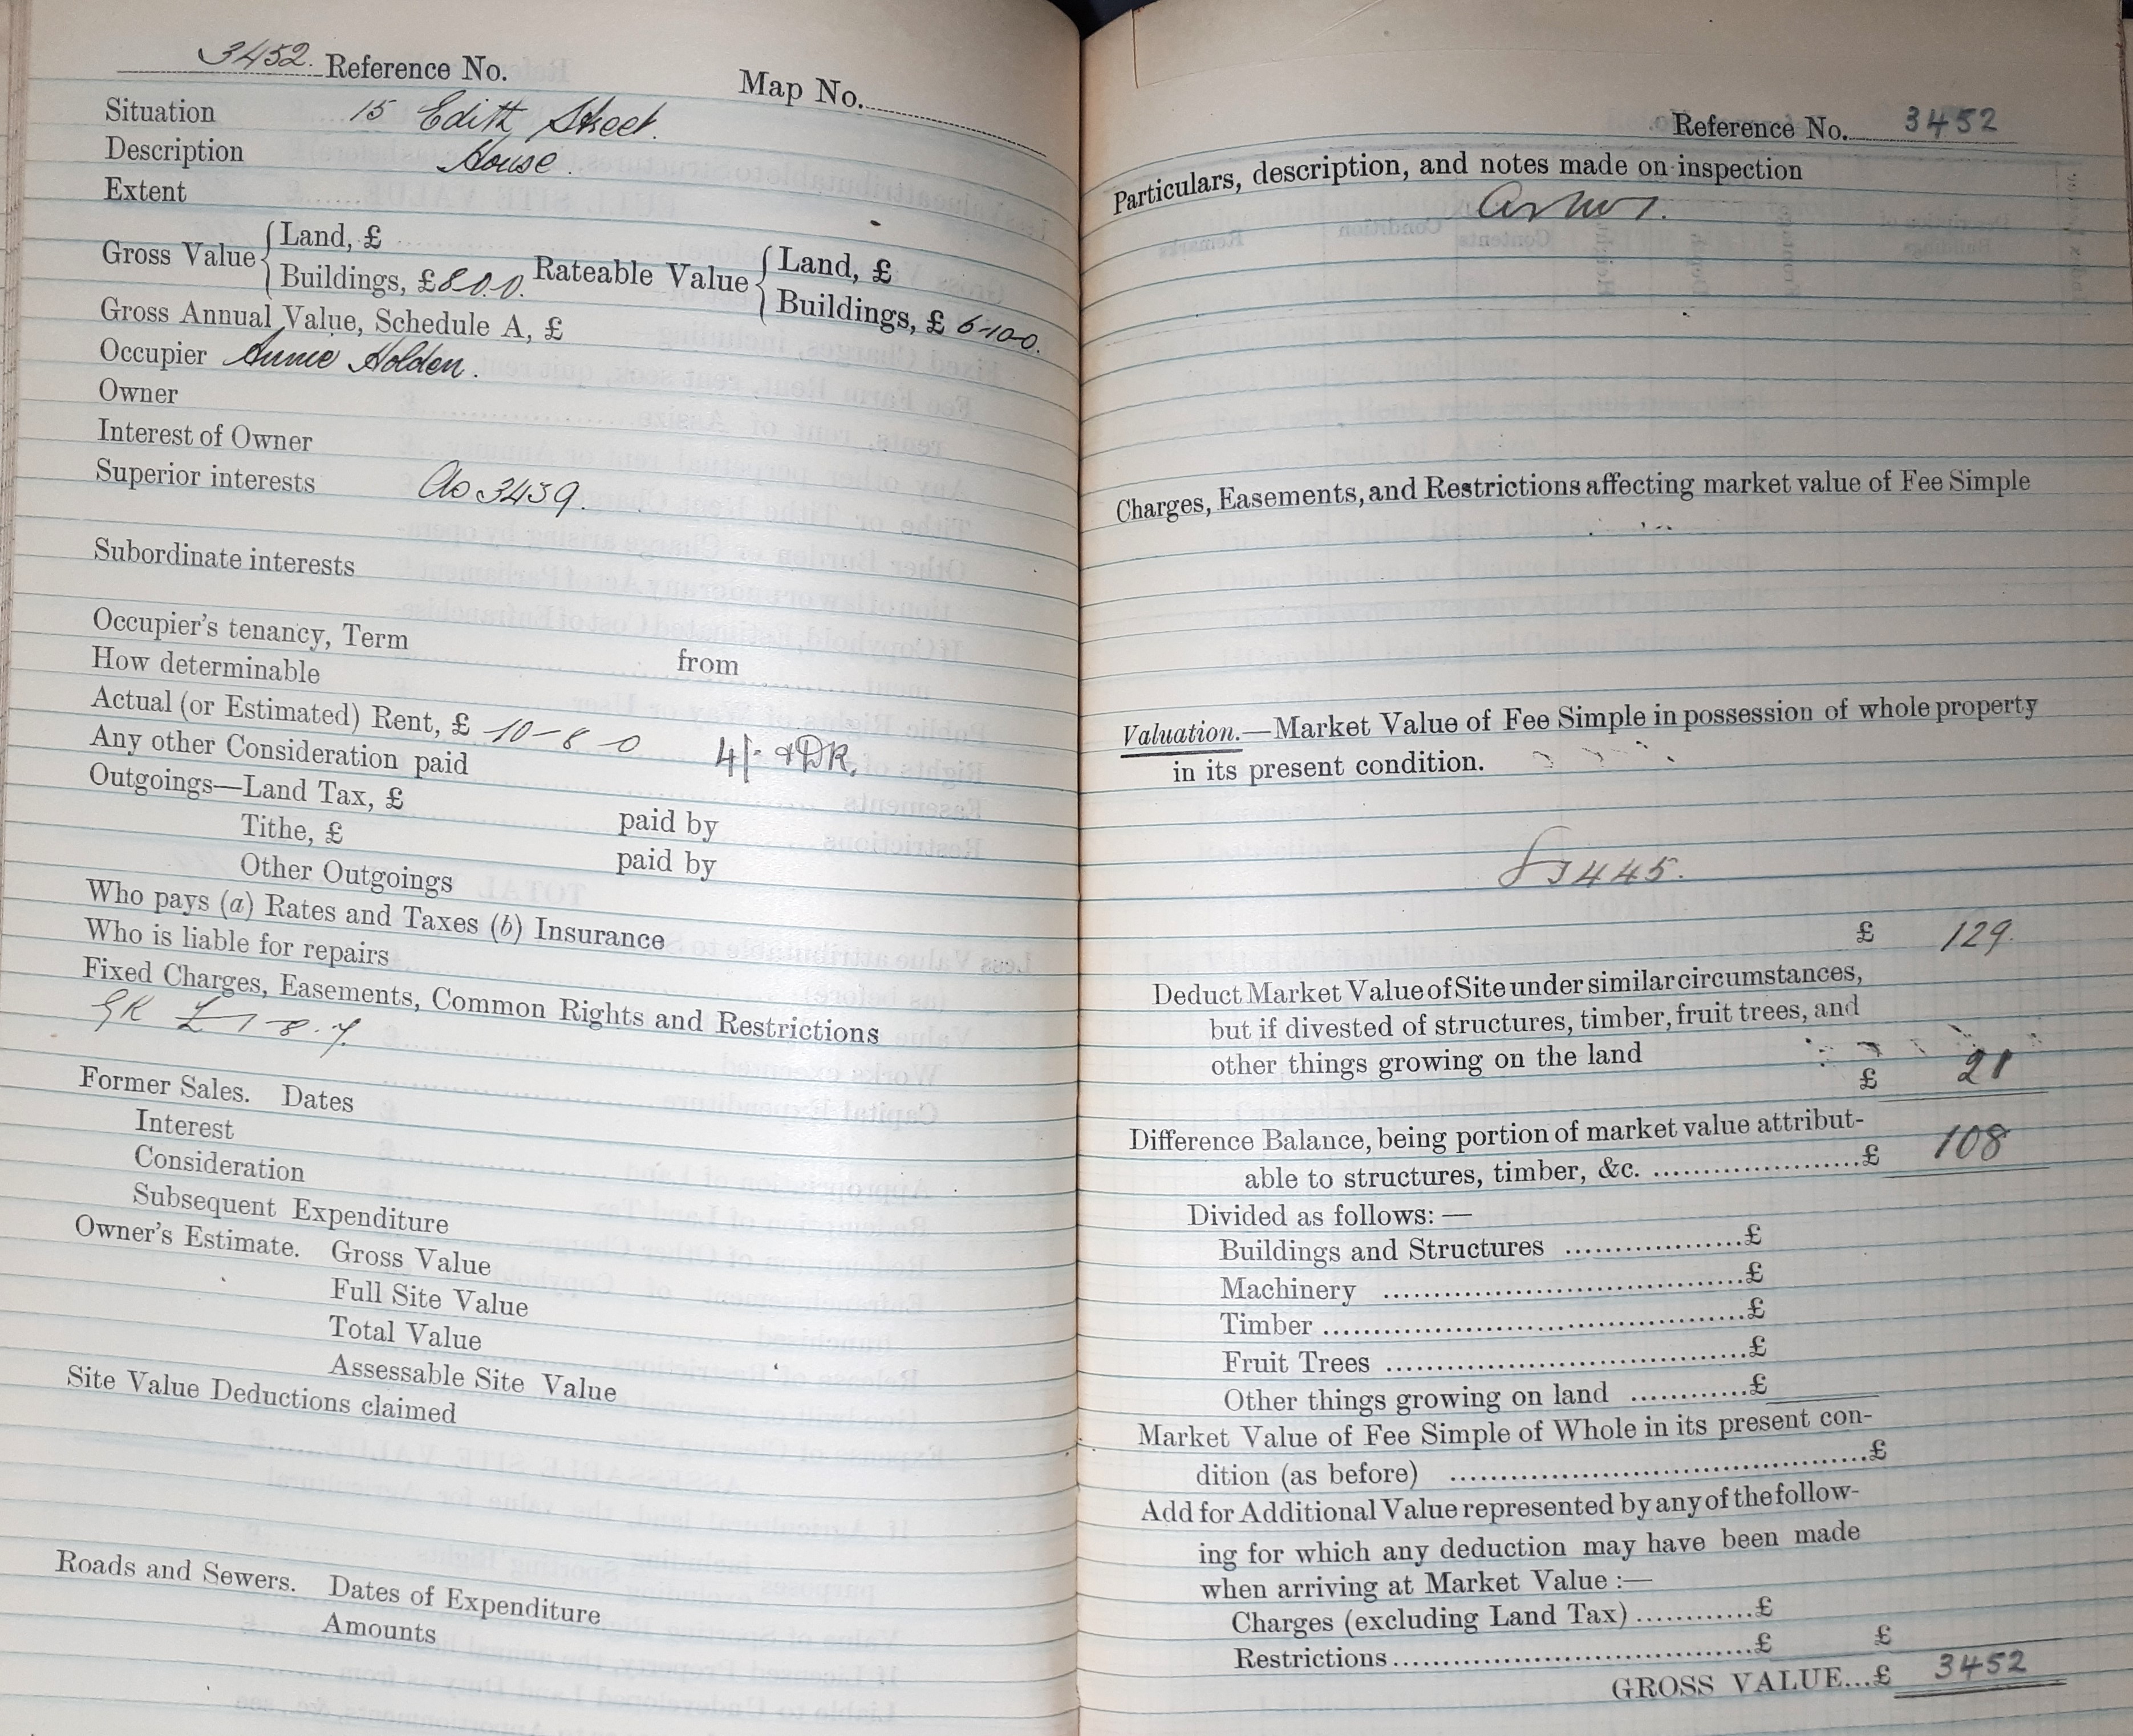 3452. Reference No. Map No.
Situation 15 Edith Street.
Description House.
Extent
Gross Value { Land, £ Rateable Value { Land, £
Buildings, £ 8.0.0. Buildings, £ 6-10-0.
Gross Annual Value, Schedule A, £
Occupier Annie Holden.
Owner
Interest of Owner
Superior interests
Subordinate interests
Occupier's tenancy, Term from
How determinable
Actual (or Estimated) Rent, £ 10-8-0 4/-
Any other Consideration paid
Outgoings—Land Tax, £ paid by
Tithe, £ paid by
Other Outgoings
Who pays (a) Rates and Taxes (b) Insurance
Who is liable for repairs
Fixed Charges, Easements, Common Rights and Restrictions
£1-8.7.
Former Sales. Dates
Interest
Consideration
Subsequent Expenditure
Owner's Estimate. Gross Value
Full Site Value
Total Value
Assessable Site Value
Site Value Deductions claimed
Roads and Sewers. Dates of Expenditure
Amounts
Reference No. 3452
Particulars, description, and notes made on inspection
Charges, Easements, and Restrictions affecting market value of Fee Simple
Valuation.—Market Value of Fee Simple in possession of whole property
in its present condition.
3445.
£ 129.
Deduct Market Value of Site under similar circumstances,
but if divested of structures, timber, fruit trees, and
other things growing on the land
£ 21
Difference Balance, being portion of market value attribut-
able to structures, timber, &c. ....................£ 108
Divided as follows: —
Buildings and Structures ..................£
Machinery ....................................£
Timber ..........................................£
Fruit Trees ....................................£
Other things growing on land ............£
Market Value of Fee Simple of Whole in its present con-
dition (as before) ..........................................£
Add for Additional Value represented by any of the follow-
ing for which any deduction may have been made
when arriving at Market Value :—
Charges (excluding Land Tax) ............£
Restrictions ....................................£ £
GROSS VALUE...£ 3452